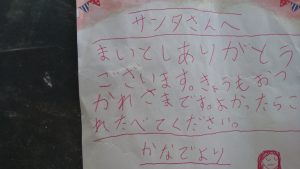 サンタさんへ
まいとしありがとう
ございます。きょうもおつ
かれさまです。よかったらこ
れたべてください。
かなでより